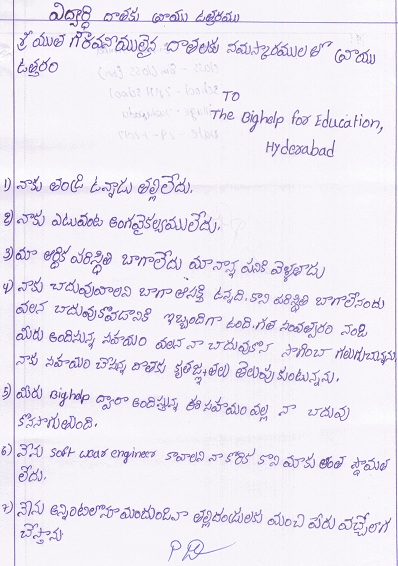 విద్యార్థి దాతకు వ్రాయు ఉత్తరము
శ్రీ యుత గౌరవనీయులైన దాతలకు నమస్కారములతో వ్రాయు
ఉత్తరం
TO
The Bighelp for Education,
Hyderabad
1) నాకు తండ్రి ఉన్నాడు తల్లి లేదు.
2) నాకు ఎటువంటి అంగవైకల్యము లేదు.
3) మా ఆర్థిక పరిస్థితి బాగాలేదు మా నాన్న పనికి వెళ్ళతాడు
4) నాకు చదువుకోవాలని బాగా ఆసక్తి ఉన్నది. కాని పరిస్థితి బాగాలేనందు
వలన చదువుకోవడానికి ఇబ్బందిగా ఉంది. గత సంవత్సరం నుండి
మీరు అందిస్తున్న సహాయం వలన నా చదువుకొన సాగించ గలుగుచున్నాను.
నాకు సహాయం చేసిన దాతకు కృతజ్ఞతలు తెలుపు కుంటున్నను.
5) మీరు Bighelp ద్వారా అందిస్తున్న ఈ సహాయం వల్ల నా చదువు
కొనసాగుతుంది.
6) నేను soft wear engineer కావాలని నా కోరిక కాని మాకు అంత స్థోమత
లేదు.
7) నేను అన్నింటిలోనూ ముందుండి నా తల్లిదండ్రులకు మంచి పేరు వచ్చేలాగ
చేస్తాను